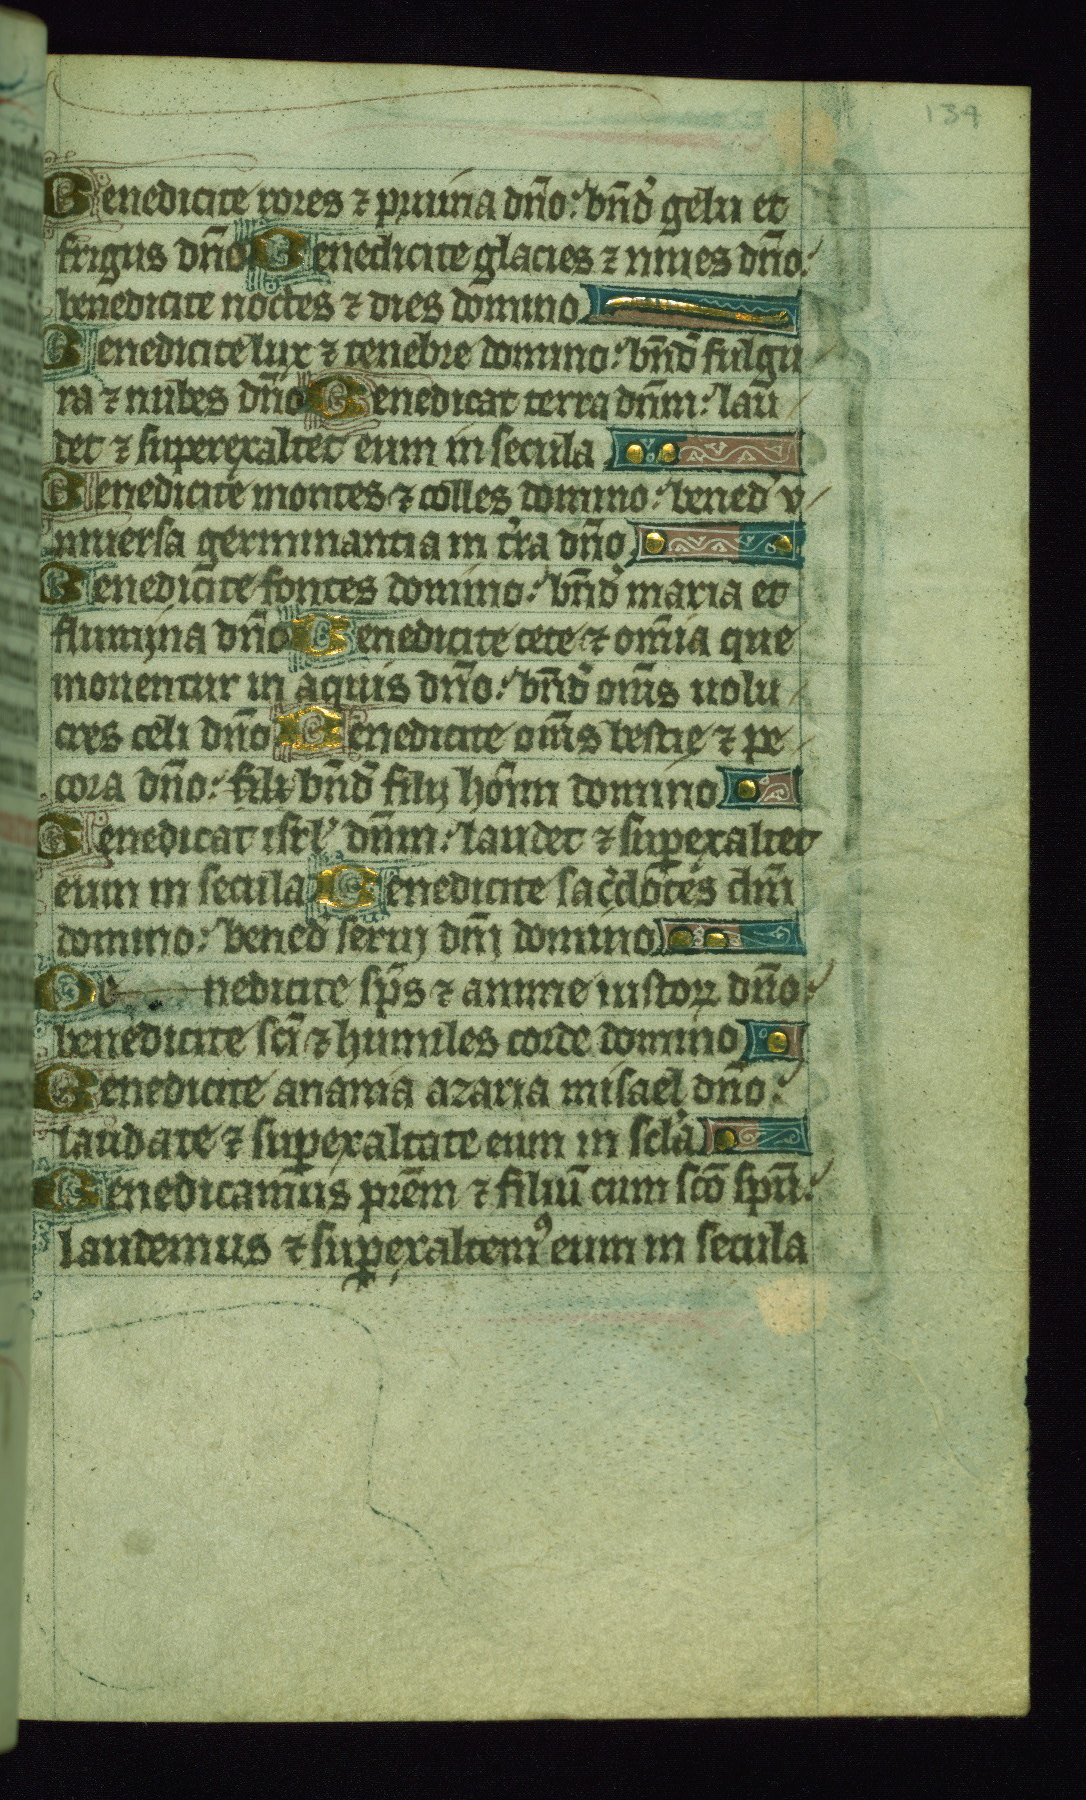 134
Benedicite rores ⁊ pruina dn̄o: bn̄d̾ gelu et
frigus dn̄o Benedicite glacies ⁊ niues dn̄o:
benedicite noctes ⁊ dies domino
Benedicite lux ⁊ tenebre domino: bn̄d̾ fulgu
ra ⁊ nubes dn̄o Benedicat terra dn̄m: lau
det ⁊ superexaltet eum in secula
Benedicite montes ⁊ colles domino: bened̾ v
niuersa germinantia in t̾ra dn̄o
Benedicite fontes domino: bn̄d̾ maria et
flumina dn̄o Benedicite cete ⁊ om̄ia que
mouentur in aquis dn̄o: bn̄d̾ om̄s uolu
cres celi dn̄o Benedicite om̄s bestie ⁊ pe
cora dn̄o: fili bn̄d̾ filij hoīm domino
Benedicat isrl̾ dn̄m: laudet ⁊ suꝑexaltet
eum in secula Benedicite sac̾dotes dn̄i
domino: bened̾ serui dn̄i domino
Be nedicite sp̄s ⁊ anime iustoꝝ dn̄o:
benedicite sc̄i ⁊ humiles corde domino
Benedicite anania azaria misael dn̄o:
laudate ⁊ suꝑexaltate eum in scl̾a
Benedicamus prēm ⁊ filiū cum sc̄o sp̄u:
laudemus ⁊ suꝑexaltemꝰ eum in secula